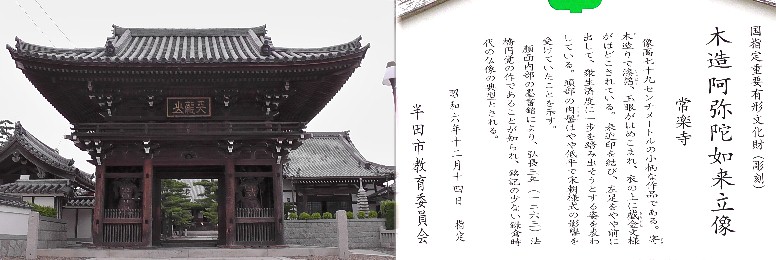 天龍山
国指定重要有形文化財(彫刻)
木造阿弥陀如来立像
常楽寺
像高七十九センチメートルの小柄な作品である。寄
木造りで漆箔、玉眼がはめこまれ、衣の上に截金文様
がほどこされている。来迎印を結び、左足をやや前に
出して、救生済度に一歩を踏み出そうとする姿を表わ
している。頭部の肉髻はやや低平で宋朝様式の影響を
受けていたことを示す。
顔面内部の墨書銘により、弘長三年(一二六三)法
橋円覚の作であることが知られ、銘記の少ない鎌倉時
代の仏像の典型とされる。
昭和六年十二月十四日 指定
半田市教育委員会